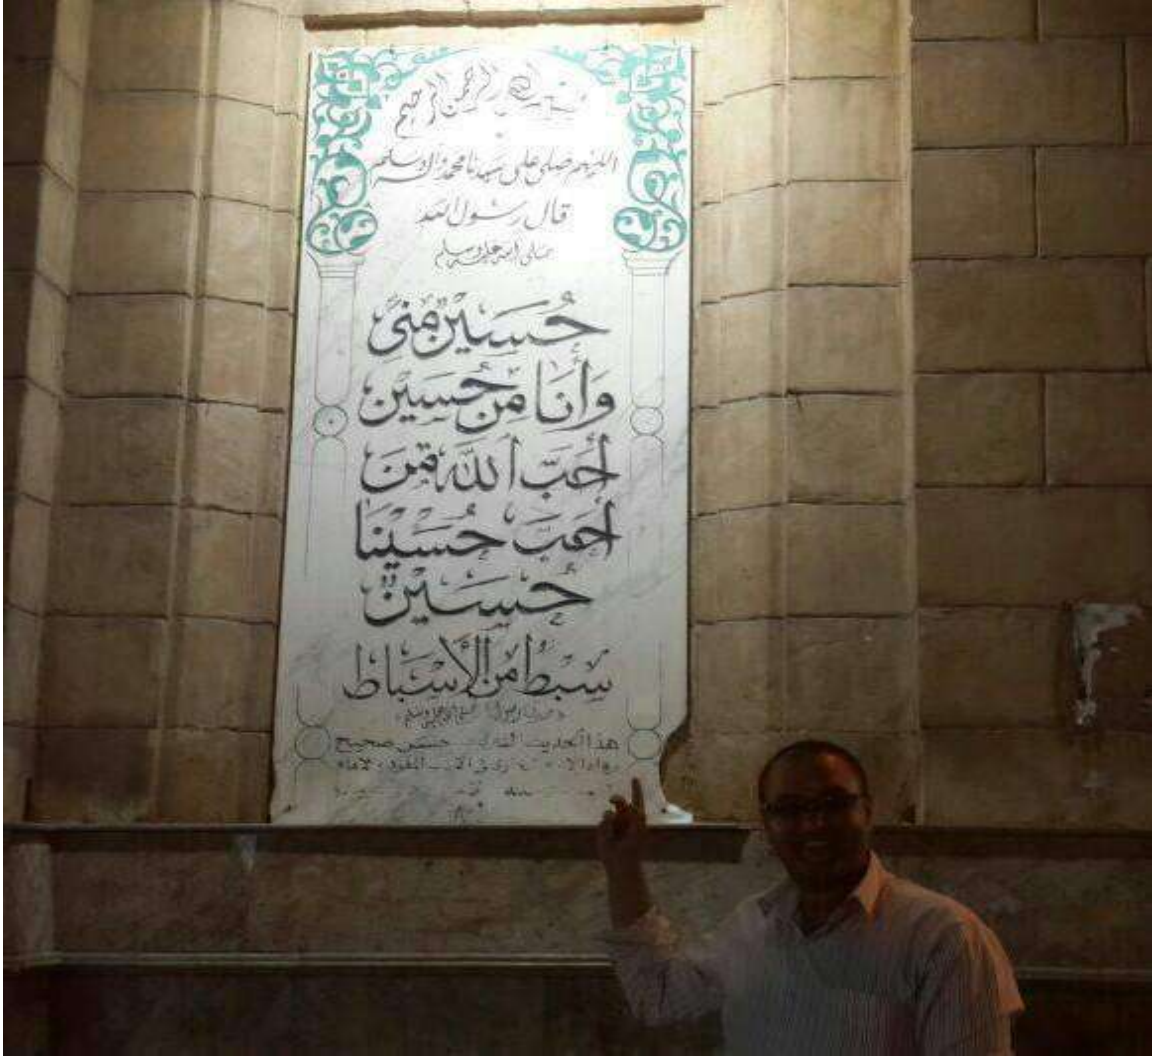 بسم الله الرحمن الرحيم
اللهم صلى على سيدنا محمد وآله وسلم
قال رسول الله
صلى الله عليه وسلم
حُسَيْنٌ مِنِّى
وَأَنَا مِنْ حُسَيْن
أَحَبَّ اللَّهُ مَنْ
أَحَبَّ حُسَيْنَا
حُسَيْنٌ
سِبْطٌ مِنَ الأَسْبَاط
هذا الحديث حسن صحيح
رواه فى الأدب المفرد